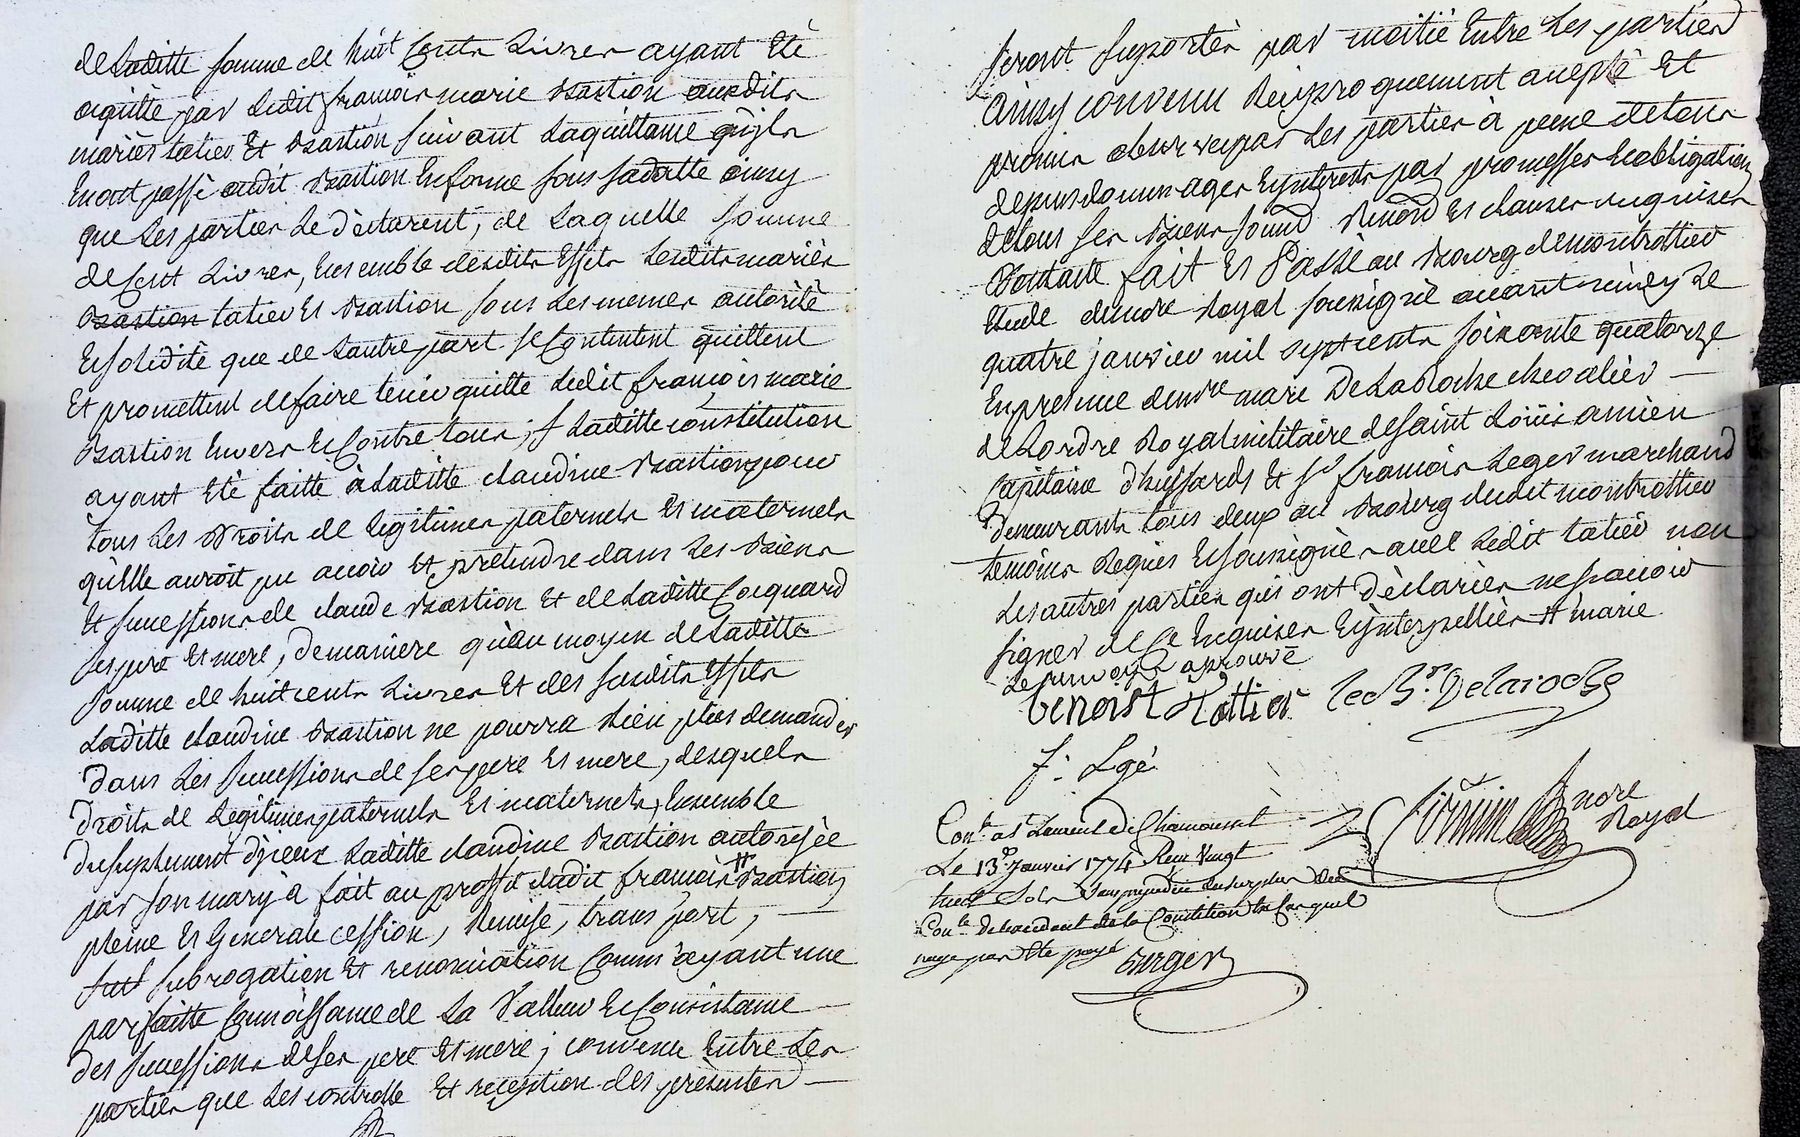 de laditte somme de huit cents livres ayant été
aquitté par ledit françois marie Bastion auxdits
mariés tatieu Et Bastion suivant la quittance qu'ils
En ont passé audit Bastion En forme sous sa datte ainsy
que les parties le déclarent, de laquelle somme
de Cent Livres, Ensemble desdits Effets lesdits mariés
Bastion tatieu Et Bastion sous les memes autorité
Et solidité que de l'autre part se Contentent quittent
Et promettent de faire tenir quitte ledit françois marie
Bastion Envers Et Contre tous; laditte constitution
ayant été faitte à laditte claudine Bastion pour
tous les Droits de legitimes paternels Et maternels
qu'Elle auroit pu avoir Et pretendre dans les Biens
Et successions de claude Bastion Et de laditte Cocquard
ses pere Et mere, de maniere qu'au moyen de laditte
somme de huit cents Livres Et des susdits Effets
Laditte claudine Bastion ne pourra Rien plus demander
dans les successions de ses pere Et mere, desquels
droits de Legitimes paternels Et maternels, Ensemble
du suplement d'jceux Laditte claudine Bastion autorisée
par son mary à fait au proffit dudit françois # Bastion
pleine Et Generale cession, Remise, transport,
sub subrogation Et renonciation Comm'ayant une
parfaitte Connoissance de La Valleur Et Consistance
des successions de ses pere Et mere; convenu Entre Les
parties que Les controlle Et reception des présentes
seront suportés par moitié Entre Les parties
ainsy convenu Reciproquement accepté Et
promis observer par Les parties à peine de tous
depens dommages Et jnterests par promesses Et obligation
de tous ses Biens soumis Renond Et clauses requises
Dontacte fait Et Passé au Bourg de montrottier
Etude dunore Royal soussigné avant midy Le
quatre janvier mil sept cents soixante quatorze
En presence de mre marc De Laroche chevalier
de Lordre Royal militaire de saint Loüis ancien
Capitaine d'hussards Et sr françois Leger marchand
Demeurants tous deux au Bourg dudit montrottier
temoins Requis Et soussignés avec Ledit tatieu non
Les autres parties qui ont déclarées ne sçavoir
signer de Ce Enquises Et jnterpellées # marie
Le renvoy aprouvé
benoist tattier Le Chr. Delaroche
f: Lgé
Conlé a St Laurent de Chamousset
Le 13e Janvier 1774 Reçu Vingt
huit Sols Sans prejudice du surplus du
Conle dependant de la Constitution
Burger
nore
Royal